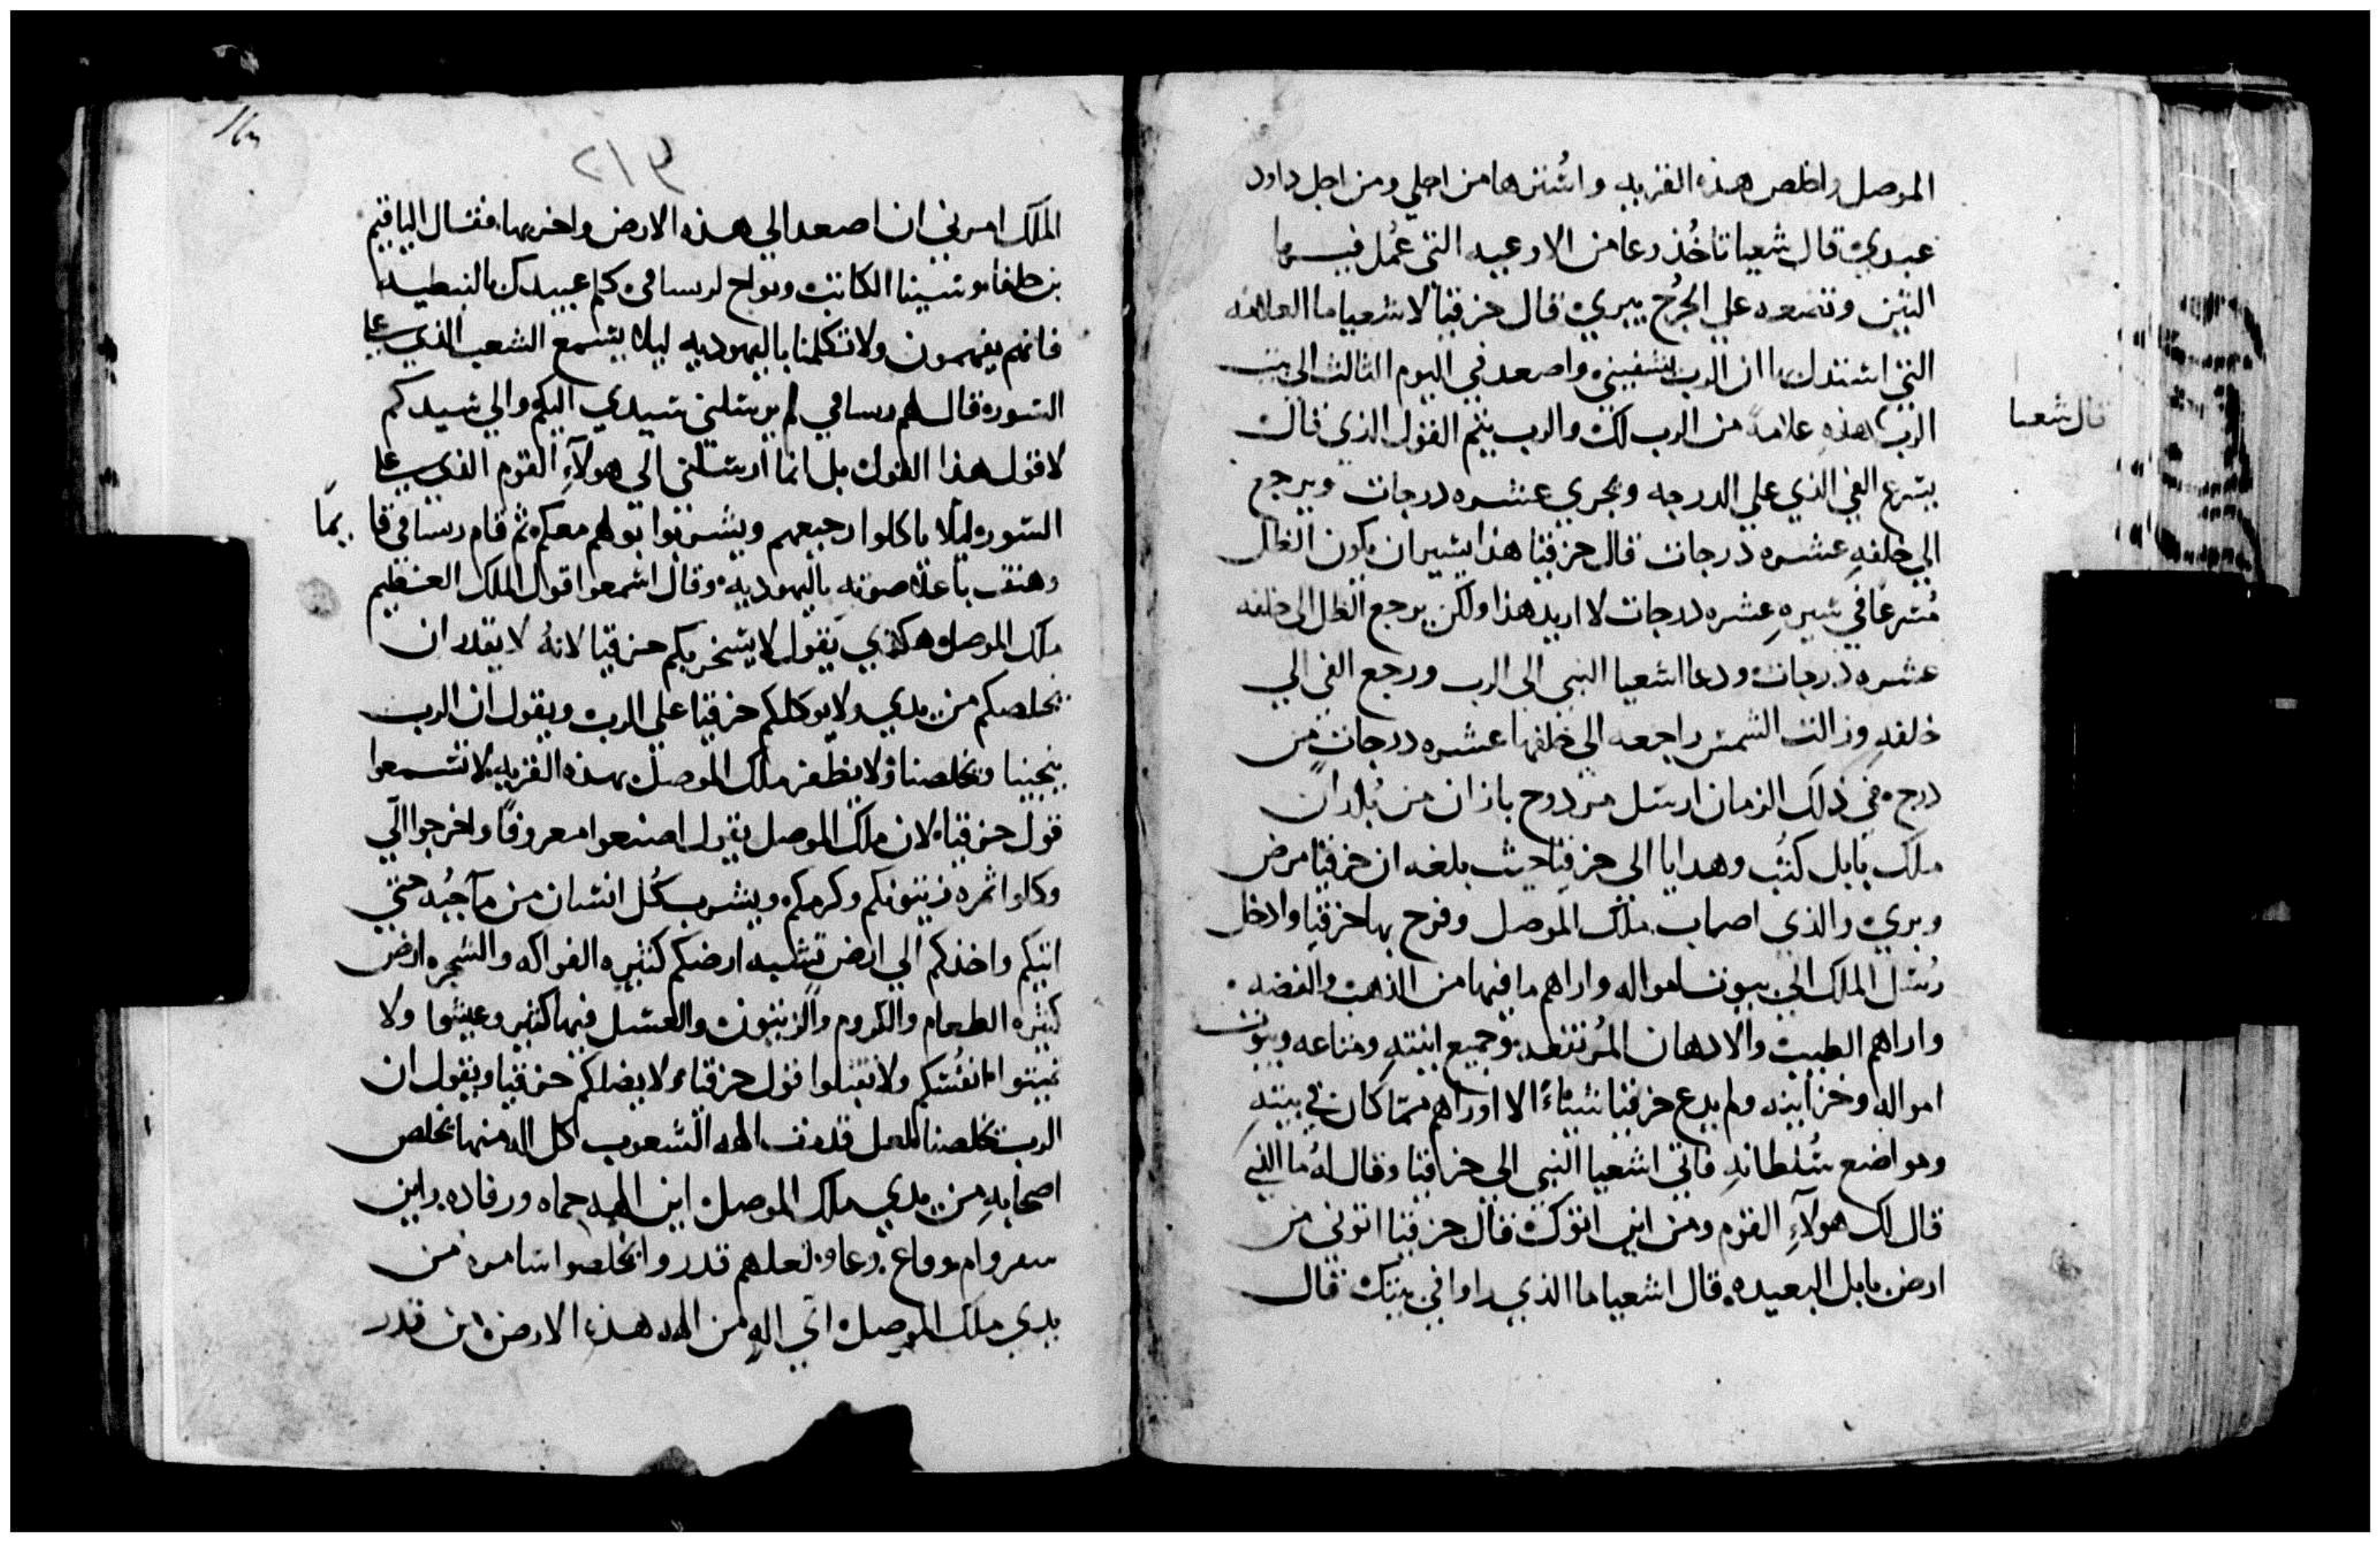 الموصل واخلص هذه القريه واسترها من اجلي ومن اجل داود
عبدي قال شعيا تاخذ وعا من الاوعيه التي عمل فيها
التين وتضعه علي الجرح يبري قال حزقيا لاشعيا ما العلامه
التي استدل بها ان الرب يشفيني واصعد في اليوم الثالث الي بيت
الرب هذه علامة من الرب لك والرب يتم القول الذي قال
قال شعيا
يسرع الفي الذي علي الدرجه ويجري عشره درجات ويرجع
الي خلفه عشره درجات قال حزقيا هذا يسير ان يكون الظل
مسرعا في سيره عشره درجات لا اريد هذا ولكن يرجع الظل الي خلفه
عشره درجات ودعا اشعيا النبي الي الرب ورجع الفي الي
خلفه وزالت الشمس راجعه الي خلفها عشره درجات من
درج في ذلك الزمان ارسل مردوح باذان من بلدان
ملك بابل كتب وهدايا الي حزقيا حيث بلغه ان حزقيا مرض
وبري والذي اصاب ملك الموصل وفرح بها حزقيا وادخل
رسل الملك الي بيوت امواله واراهم ما فيها من الذهب والفضه
واراهم الطيب والادهان المرتفعه وجميع انيته ومتاعه وبيوت
امواله وخزاينه ولم يدع حزقيا شيئاً الا اوراهم مما كان في بيته
ومواضع سلطانه فاتي اشعيا النبي الي حزاقيا وقال له ما الذي
قال لك هولآءِ القوم ومن اين اتوك قال حزقيا اتوني من
ارض بابل البعيده قال اشعيا ما الذي راوا في بيتك قال
٢١٩
الملك امرني ان اصعد الي هذه الارض واخربها فقال الياقيم
بن حلفيا وشبينا الكاتب ويواح لرساقي كلم عبيدك بالنبطيه
فانهم يفهمون ولا تكلمنا باليهوديه ليلا يسمع الشعب الذي علي
السوره قال لهم رساقي لم يرسلني سيدي اليكم والي سيدكم
لاقول هذا القول بل انما ارسلني الي هولآءِ القوم الذي علي
السوره ليلا ياكلوا رجيعهم ويشربوا بولهم معكم ثم قام رساقي قايمًا
وهتف باعلا صوته باليهوديه وقال اسمعوا قول الملك العظيم
ملك الموصل هكذي يقول لا يسخر بكم حزقيا لانهُ لا يقدر ان
يخلصكم من يدي ولا يوكلكم حزقيا علي الرب ويقول ان الرب
ينجينا ويخلصنا ولا يظفر ملك الموصل بهذه القريه لا تسمعوا
قول حزقيا لان ملك الموصل يقول اصنعوا معروفًا واخرجوا الّي
وكلوا ثمره زيتونكم وكرمكم ويشرب كُل انسان من مآ جُبه حتي
اتيكم واخذكم الي ارض تشبه ارضكم كثيره الفواكه والشجره ارض
كثيره الطعام والكروم والزيتون والعسل فيها كثير وعيشوا ولا
تميتوا انفسكم ولا تقبلوا قول حزقيا ولا يضلكم حزقيا ويقول ان
الرب يخلصنا لعل قدرت الهه الشعوب كل اله منها يخلص
اصحابه من يدي ملك الموصل اين الهه حماه ورفاده واين
سفروام ووعاع وعاو لعلهم قدروا يخلصوا سامره من
يدي ملك الموصل اي اله من الهه هذه الارض من قدر